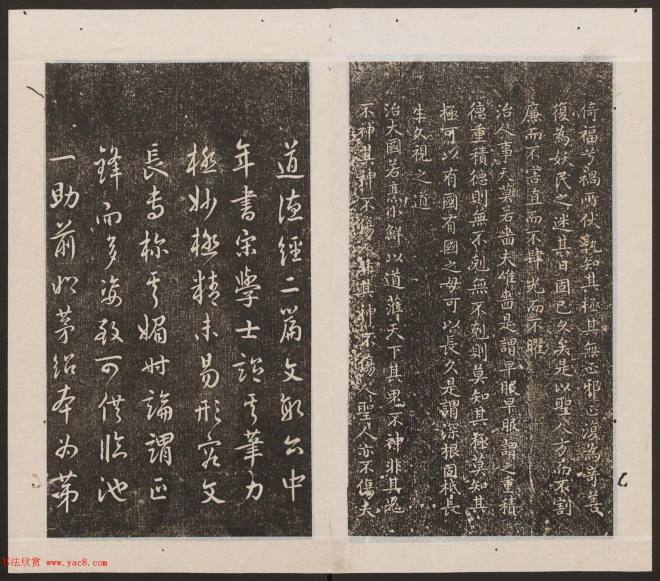 倚福兮禍所伏孰知其極其無正邪正復為奇善
復為妖民之迷其日固已久矣是以聖人方而不割
廉而不害直而不肆光而不曜
治人事天莫若嗇夫惟嗇是謂早服早服謂之重積
德重積德則無不剋無不剋則莫知其極莫知其
極可以有國有國之母可以長久是謂深根固柢長
生久視之道
治大國若亨小鮮以道莅天下其鬼不神非其鬼
不神其神不傷人非其神不傷人聖人亦不傷夫
道德經二篇文敏公中
年書宋學士謂其筆力
極妙極精未易形容文
長專称其媚时論謂正
鋒而多姿致可供臨池
一助前明茅紹本为第
书法欣赏 www.yac8.com